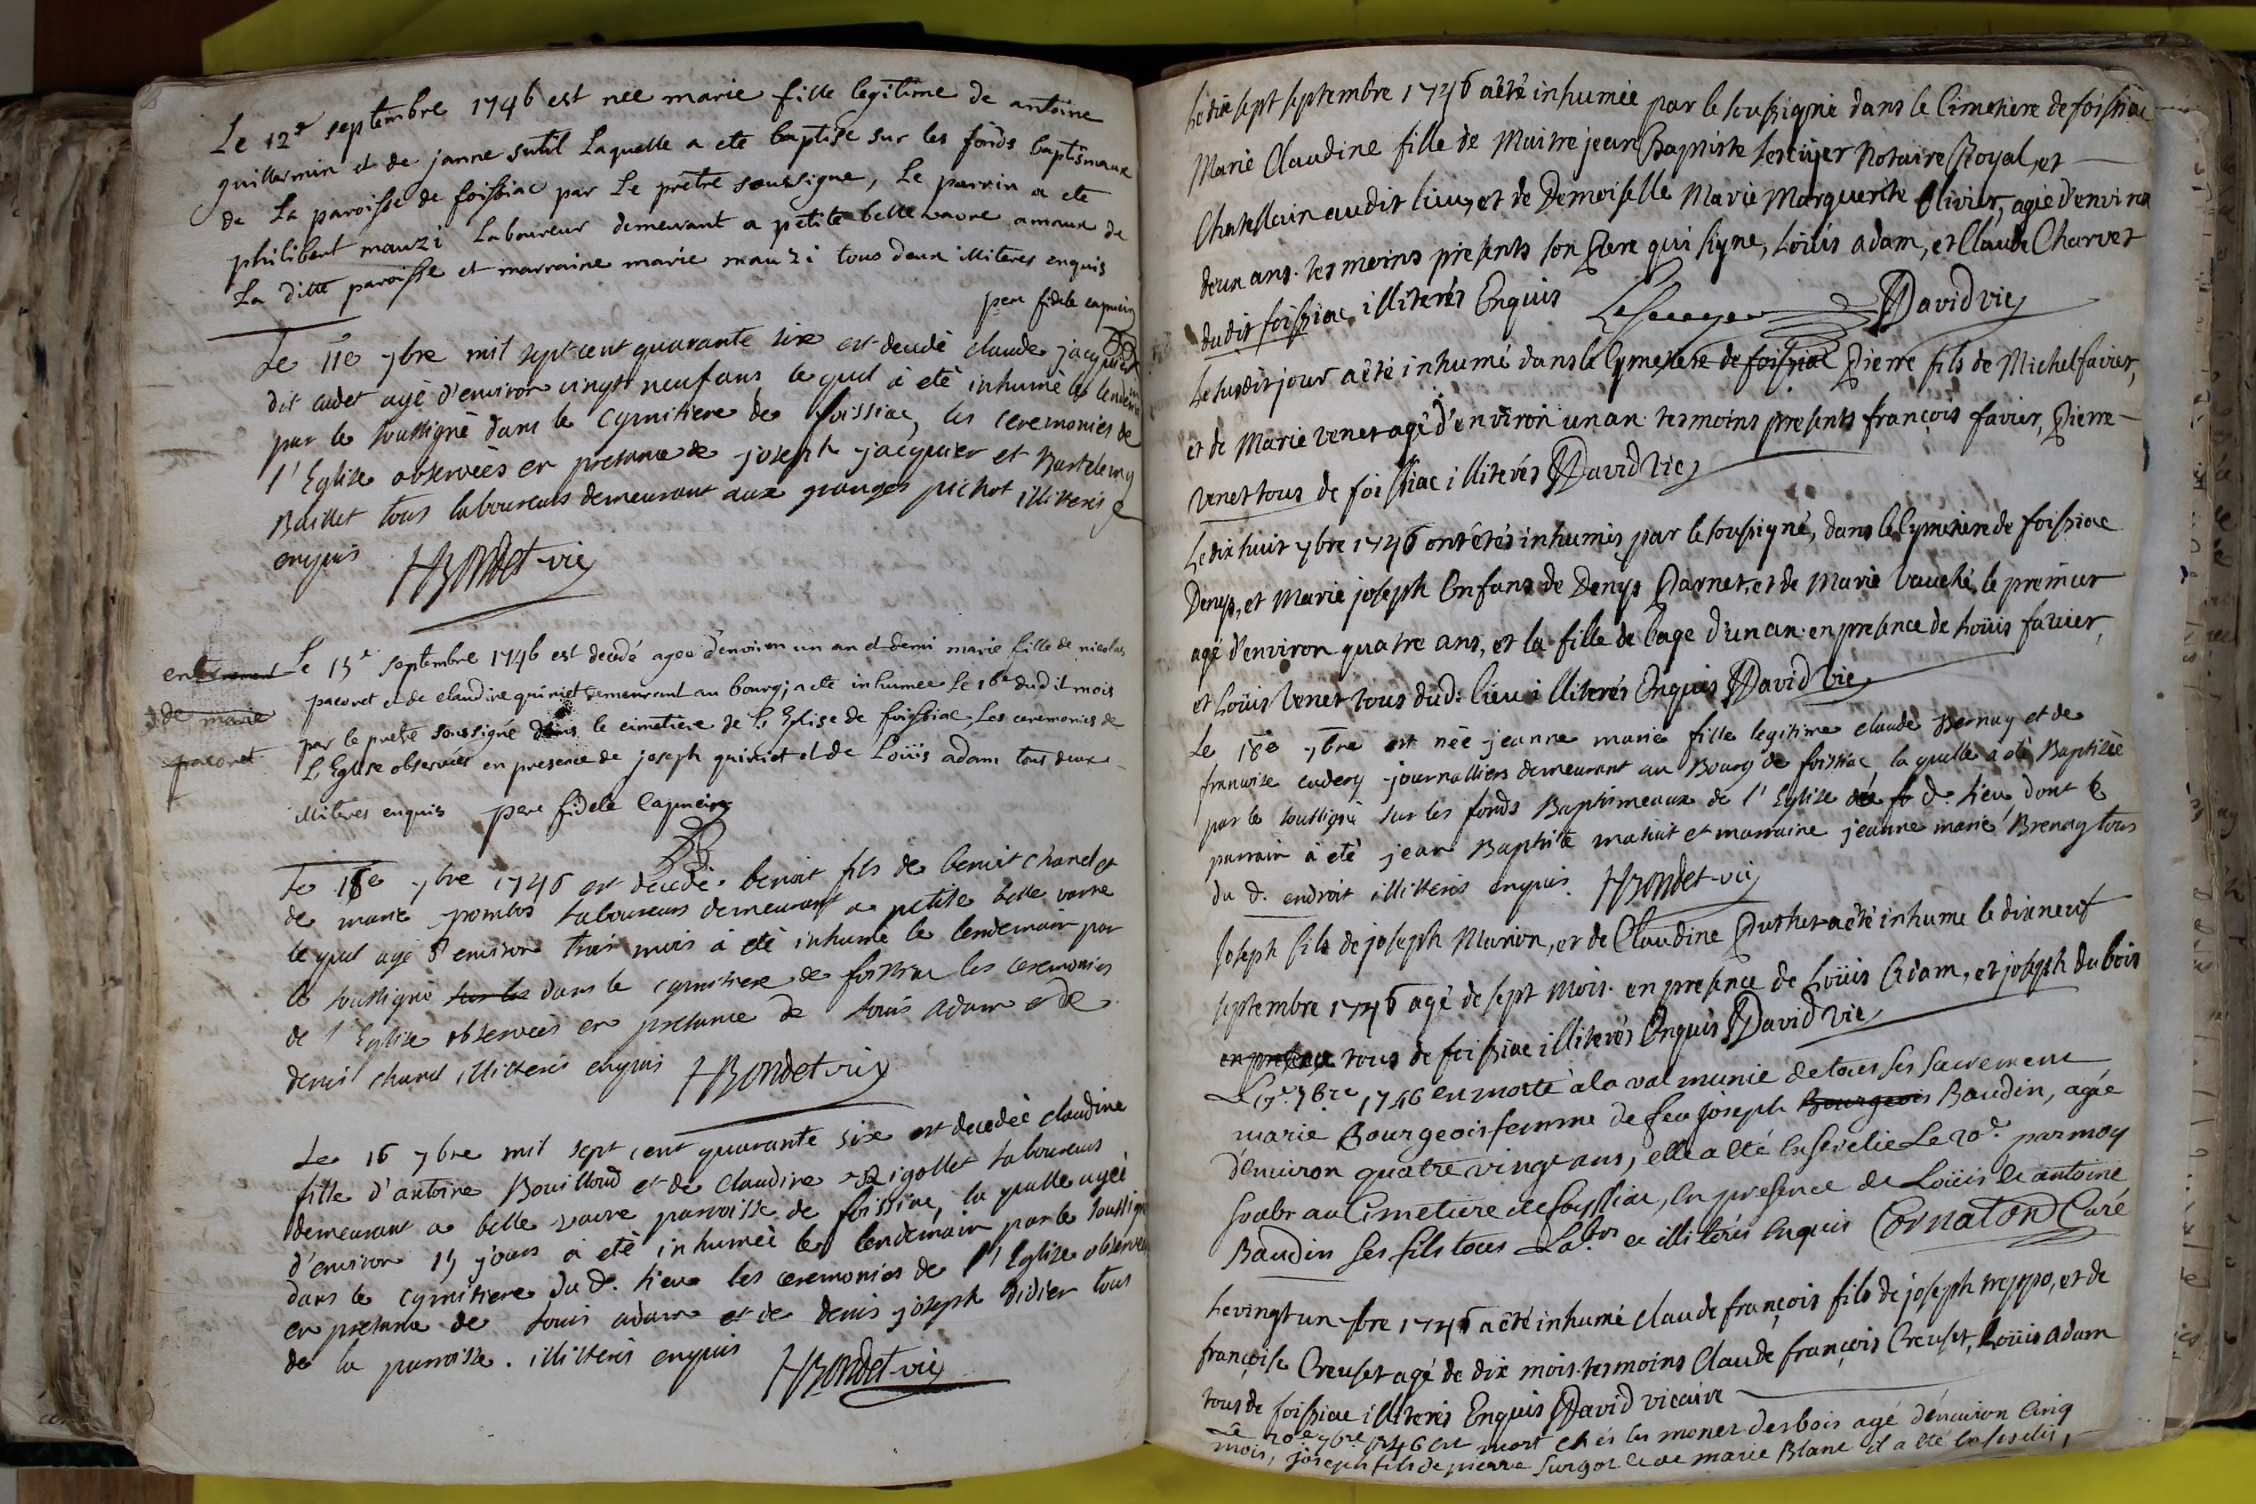 Le 12e septembre 1746 est née marie fille legitime de antoine
guillermin et de janne sutil Laquelle a ete baptise sur les fonds baptismaux
de La paroisse de foissiac par Le prêtre soussigne, Le parrin a ete
philibert mauzi Laboureur demeurant a petite belle vavre amaux de
La ditte paroisse et marraine marie mauzi tous deux illiteres enquis
pere fidele capucin
Le 11e 7bre mil sept cent quarante six est decedé claude jacquier
dit cadet agé d'environ vingt neuf ans le quel à eté inhumé le lendemain
par le soussigné dans le cymitiere de foissiac, les ceremonies de
l'Eglise observées en presence de joseph jacquier et Bartelemy
Baillet tous laboureurs demeurant aux granges pichot illitterés
enquis HBondet vic
enterement
de marie
pacoret
Le 15e septembre 1746 est decedé agée d'environ un an et demi marie fille de nicolas
pacoret et de claudine quiniet demeurant au bourg; a eté inhumee Le 16e dudit mois
par le pretre soussigné dans le cimetiere de L'Eglise de foissiac Les ceremonies de
L'Eglise observées en presence de joseph quiniet et de Loüis adam tous deux
illiteres enquis pere fidele Capucin
Le 16e 7bre 1746 est decedé benoit fils de benoit chanel et
de marie pombos laboureurs demeurant a petite belle vavre
le quel agé d'environ trois mois à eté inhumé le lendemain par
le soussigné sur les dans le cymitiere de foissiac les ceremonies
de l'Eglise observées en presence de louis adam et de
denis chanel illitterés enquis HBondet vic
Le 16 7bre mil sept cent quarante six est decedée claudine
fille d'antoine Bouilloud et de claudine Rigollet laboureurs
demeurant a belle vavre parroisse de foissiac, la quelle agée
d'environ 15 jours à eté inhumée le lendemain par le soussigné
dans le cymitiere du d. lieu les ceremonies de l'Eglise observées
en presence de louis adam et de denis joseph didier tous
de la parroisse. illitterés enquis HBondet vic
Le dix sept septembre 1746 a été inhumée par le soussigné dans le Cimetiere de foissiac
Marie Claudine fille de Maitre jean Baptiste Lescuyer Notaire Royal, et
Chatellain audit lieu, et de Demoiselle Marie Marguerite Olivier, agée d'environ
deux ans. tesmoins presents son Pere qui signe, Loüis adam, et Claude Charvet
dudit foissiac illiterés Enquis Lescuyer David vic
Le susdit jour a été inhumé dans le Cymetiere de foissiac Pierre fils de Michel favier,
et de Marie venet agé d'environ un an. tesmoins presents françois favier, Pierre
venet tous de foissiac illiterés David Vic
Le dix huit 7bre 1746 ont étés inhumés par le soussigné, dans le Cymetiere de foissiac
Denys, et Marie joseph Enfans de Denys Darnet, et de Marie vauché, le premier
agé d'environ quatre ans, et la fille de l'age d'un an. en presence de Loüis favier,
et Loüis Venet tous dud. lieu illiterés Enquis David Vic
Le 18e 7bre est née jeanne marie fille legitime claude Pernuy et de
francoise cudery journalliers demeurant au Bourg de foissiac, la quelle à eté Baptizée
par le soussigné sur les fonds Baptismeaux de l'Eglise du d. lieu, dont le
parrain à eté jean Baptiste mataut et marraine jeanne marie Brenay tous
du d. endroit illitterés enquis. HBondet vic
Joseph fils de joseph Marion, et de Claudine Duthet a été inhumé le dix neuf
septembre 1746 agé de sept Mois. en presence de Loüis Adam, et joseph du bois
en presence tous de foissiac illiterés Enquis David Vic
Le 19e 7bre 1746 est morte à la val munie de tous ses sacremens
marie Bourgeois femme de feu joseph Bourgeois Baudin, agée
d'environ quatre vingt ans, elle a eté Ensevelie Le 20e par moy
soubs au Cimetiere de foyssiac, en presence de Loüis et antoine
Baudin ses fils tous Labrs et illiterés Enquis Cornaton Curé
Le vingt un 7bre 1746 a été inhumé claude françois fils de joseph treppo, et de
françoise Creuset agé de dix mois. tesmoins Claude françois Creuset, Loüis Adam
tous de foissiac illiterés Enquis David vicaire
Le 20e 7bre 1746 est mort chés les monet desbois agé d'environ Cinq
mois, joseph fils de pierre surgot et de marie Blanc il a eté Enseveli,